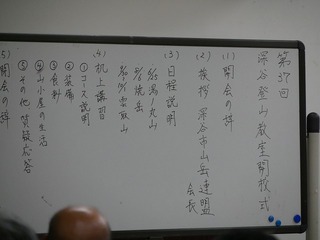 第37回
深谷登山教室開校式
(1) 開会の辞
(2) 挨拶 深谷市山岳連盟
会長
(3) 日程説明
(4) 机上講習
①コース説明
②装備
③食料
④山小屋の生活
⑤その他 質疑応答
(5) 閉会の辞